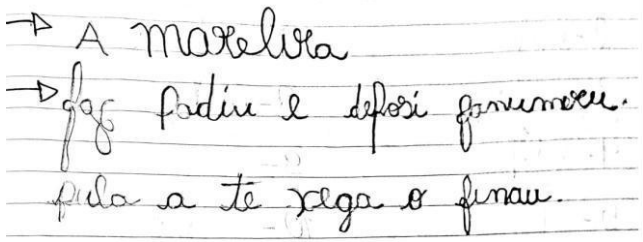 → A marelira
→ fas padiu e deposi fanumeru.
pula a te xega o finau.